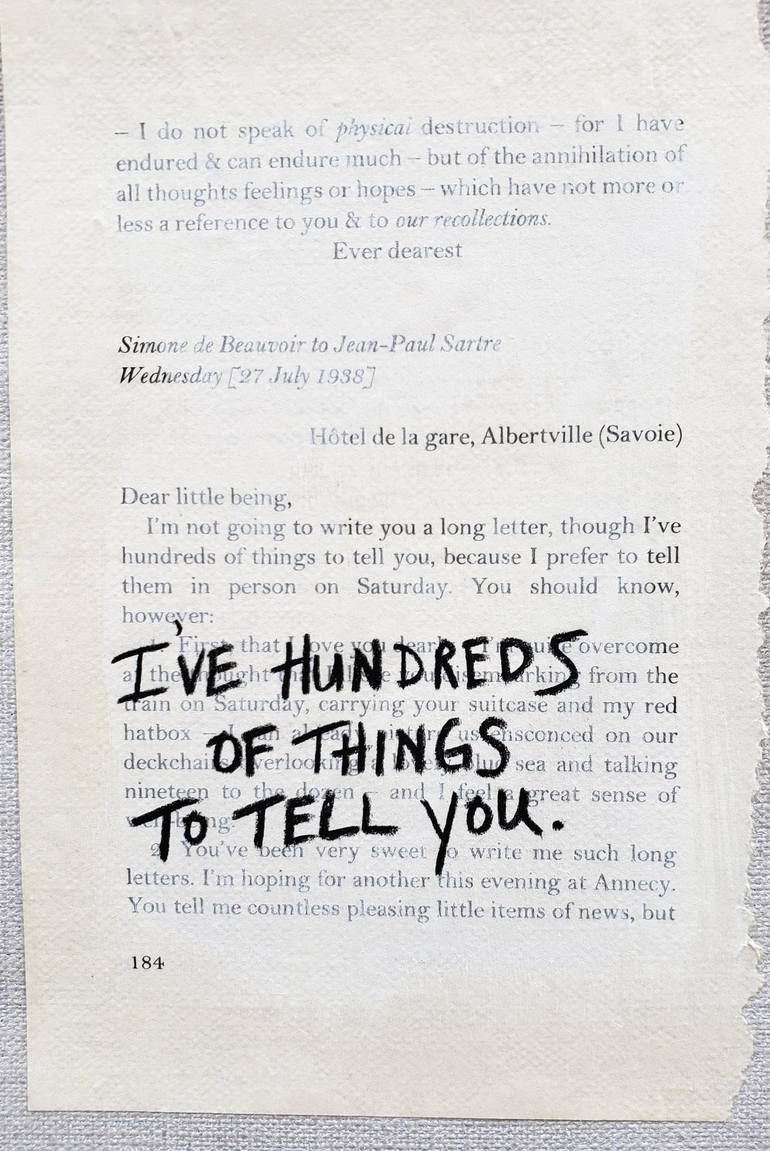 – I do not speak of physical destruction – for I have
endured & can endure much – but of the annihilation of
all thoughts feelings or hopes – which have not more or
less a reference to you & to our recollections.
Ever dearest
Simone de Beauvoir to Jean-Paul Sartre
Wednesday [27 July 1938]
Hôtel de la gare, Albertville (Savoie)
Dear little being,
I'm not going to write you a long letter, though I've
hundreds of things to tell you, because I prefer to tell
them in person on Saturday. You should know,
however:
First that I love you dearly I'm quite overcome
at the thought that disembarking from the
I'VE HUNDREDS
train on Saturday, carrying your suitcase and my red
hatbox – I can already picture us ensconced on our
OF THINGS
deckchairs overlooking a lovely blue sea and talking
nineteen to the dozen – and I feel a great sense of
TO TELL YOU.
2. You've been very sweet to write me such long
letters. I'm hoping for another this evening at Annecy.
You tell me countless pleasing little items of news, but
184